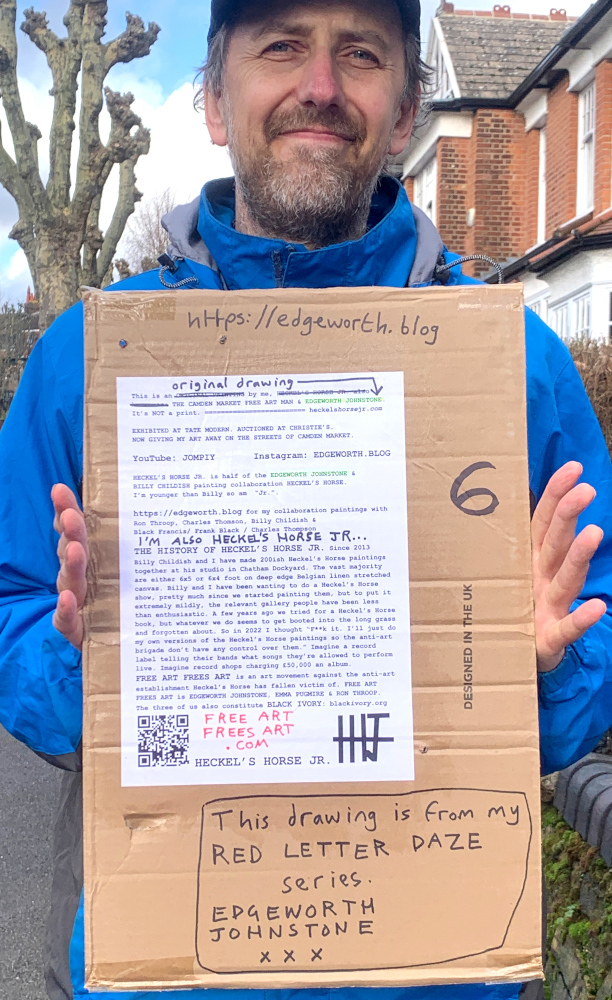 https://edgeworth.blog
original drawing
This is an ORIGINAL PAINTING by me, HECKEL'S HORSE JR. also
THE CAMDEN MARKET FREE ART MAN & EDGEWORTH JOHNSTONE.
It's NOT a print. heckelshorsejr.com
EXHIBITED AT TATE MODERN. AUCTIONED AT CHRISTIE'S.
NOW GIVING MY ART AWAY ON THE STREETS OF CAMDEN MARKET.
YouTube: JOMPIY Instagram: EDGEWORTH.BLOG
HECKEL'S HORSE JR. is half of the EDGEWORTH JOHNSTONE &
BILLY CHILDISH painting collaboration HECKEL'S HORSE.
I'm younger than Billy so am "Jr.".
https://edgeworth.blog for my collaboration paintings with
Ron Throop, Charles Thomson, Billy Childish &
Black Francis/ Frank Black / Charles Thompson
I'M ALSO HECKEL'S HORSE JR...
THE HISTORY OF HECKEL'S HORSE JR. Since 2013
Billy Childish and I have made 200ish Heckel's Horse paintings
together at his studio in Chatham Dockyard. The vast majority
are either 6x5 or 6x4 foot on deep edge Belgian linen stretched
canvas. Billy and I have been wanting to do a Heckel's Horse
show, pretty much since we started painting them, but to put it
extremely mildly, the relevant gallery people have been less
than enthusiastic. A few years ago we tried for a Heckel's Horse
book, but whatever we do seems to get booted into the long grass
and forgotten about. So in 2022 I thought "F**k it. I'll just do
my own versions of the Heckel's Horse paintings so the anti-art
brigade don't have any control over them." Imagine a record
label telling their bands what songs they're allowed to perform
live. Imagine record shops charging £50,000 an album.
FREE ART FREES ART is an art movement against the anti-art
establishment Heckel's Horse has fallen victim of. FREE ART
FREES ART is EDGEWORTH JOHNSTONE, EMMA PUGMIRE & RON THROOP.
The three of us also constitute BLACK IVORY: blackivory.org
FREE ART
FREES ART
.COM
HECKEL'S HORSE JR.
6
DESIGNED IN THE UK
This drawing is from my
RED LETTER DAZE
series.
EDGEWORTH
JOHNSTONE
x x x